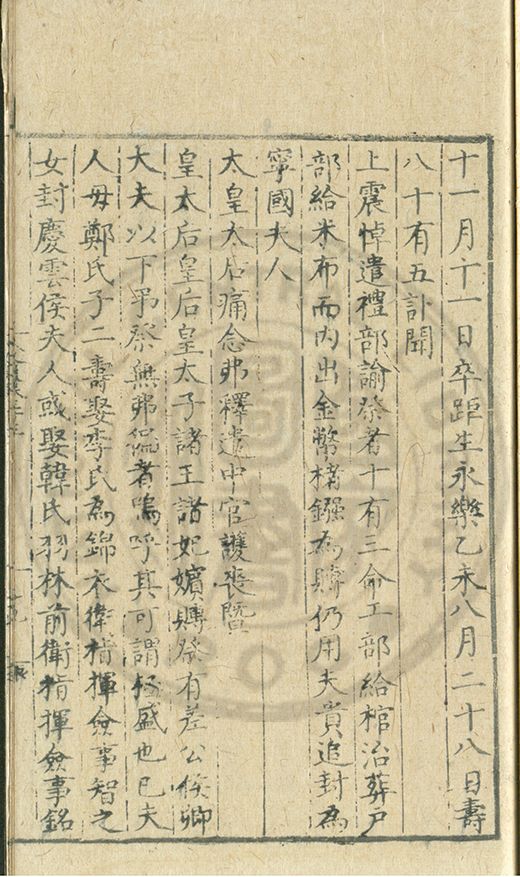 十一月十一日卒距生永樂乙未八月二十八日壽
八十有五訃聞
上震悼遣禮部諭祭者十有三命工部給棺治葬戶
部給米布而內出金幣楮鏹為賻仍用夫貴追封為
寧國夫人
太皇太后痛念弗釋遣中官護喪暨
皇太后皇后皇太子諸王諸妃嬪賻祭有差公侯卿
大夫以下弔祭無弗侃者嗚呼其可謂極盛也已夫
人毋鄭氏子二壽娶李氏為錦衣衛指揮僉事智之
女封慶雲侯夫人或娶韓氏羽林前衛指揮僉事銘